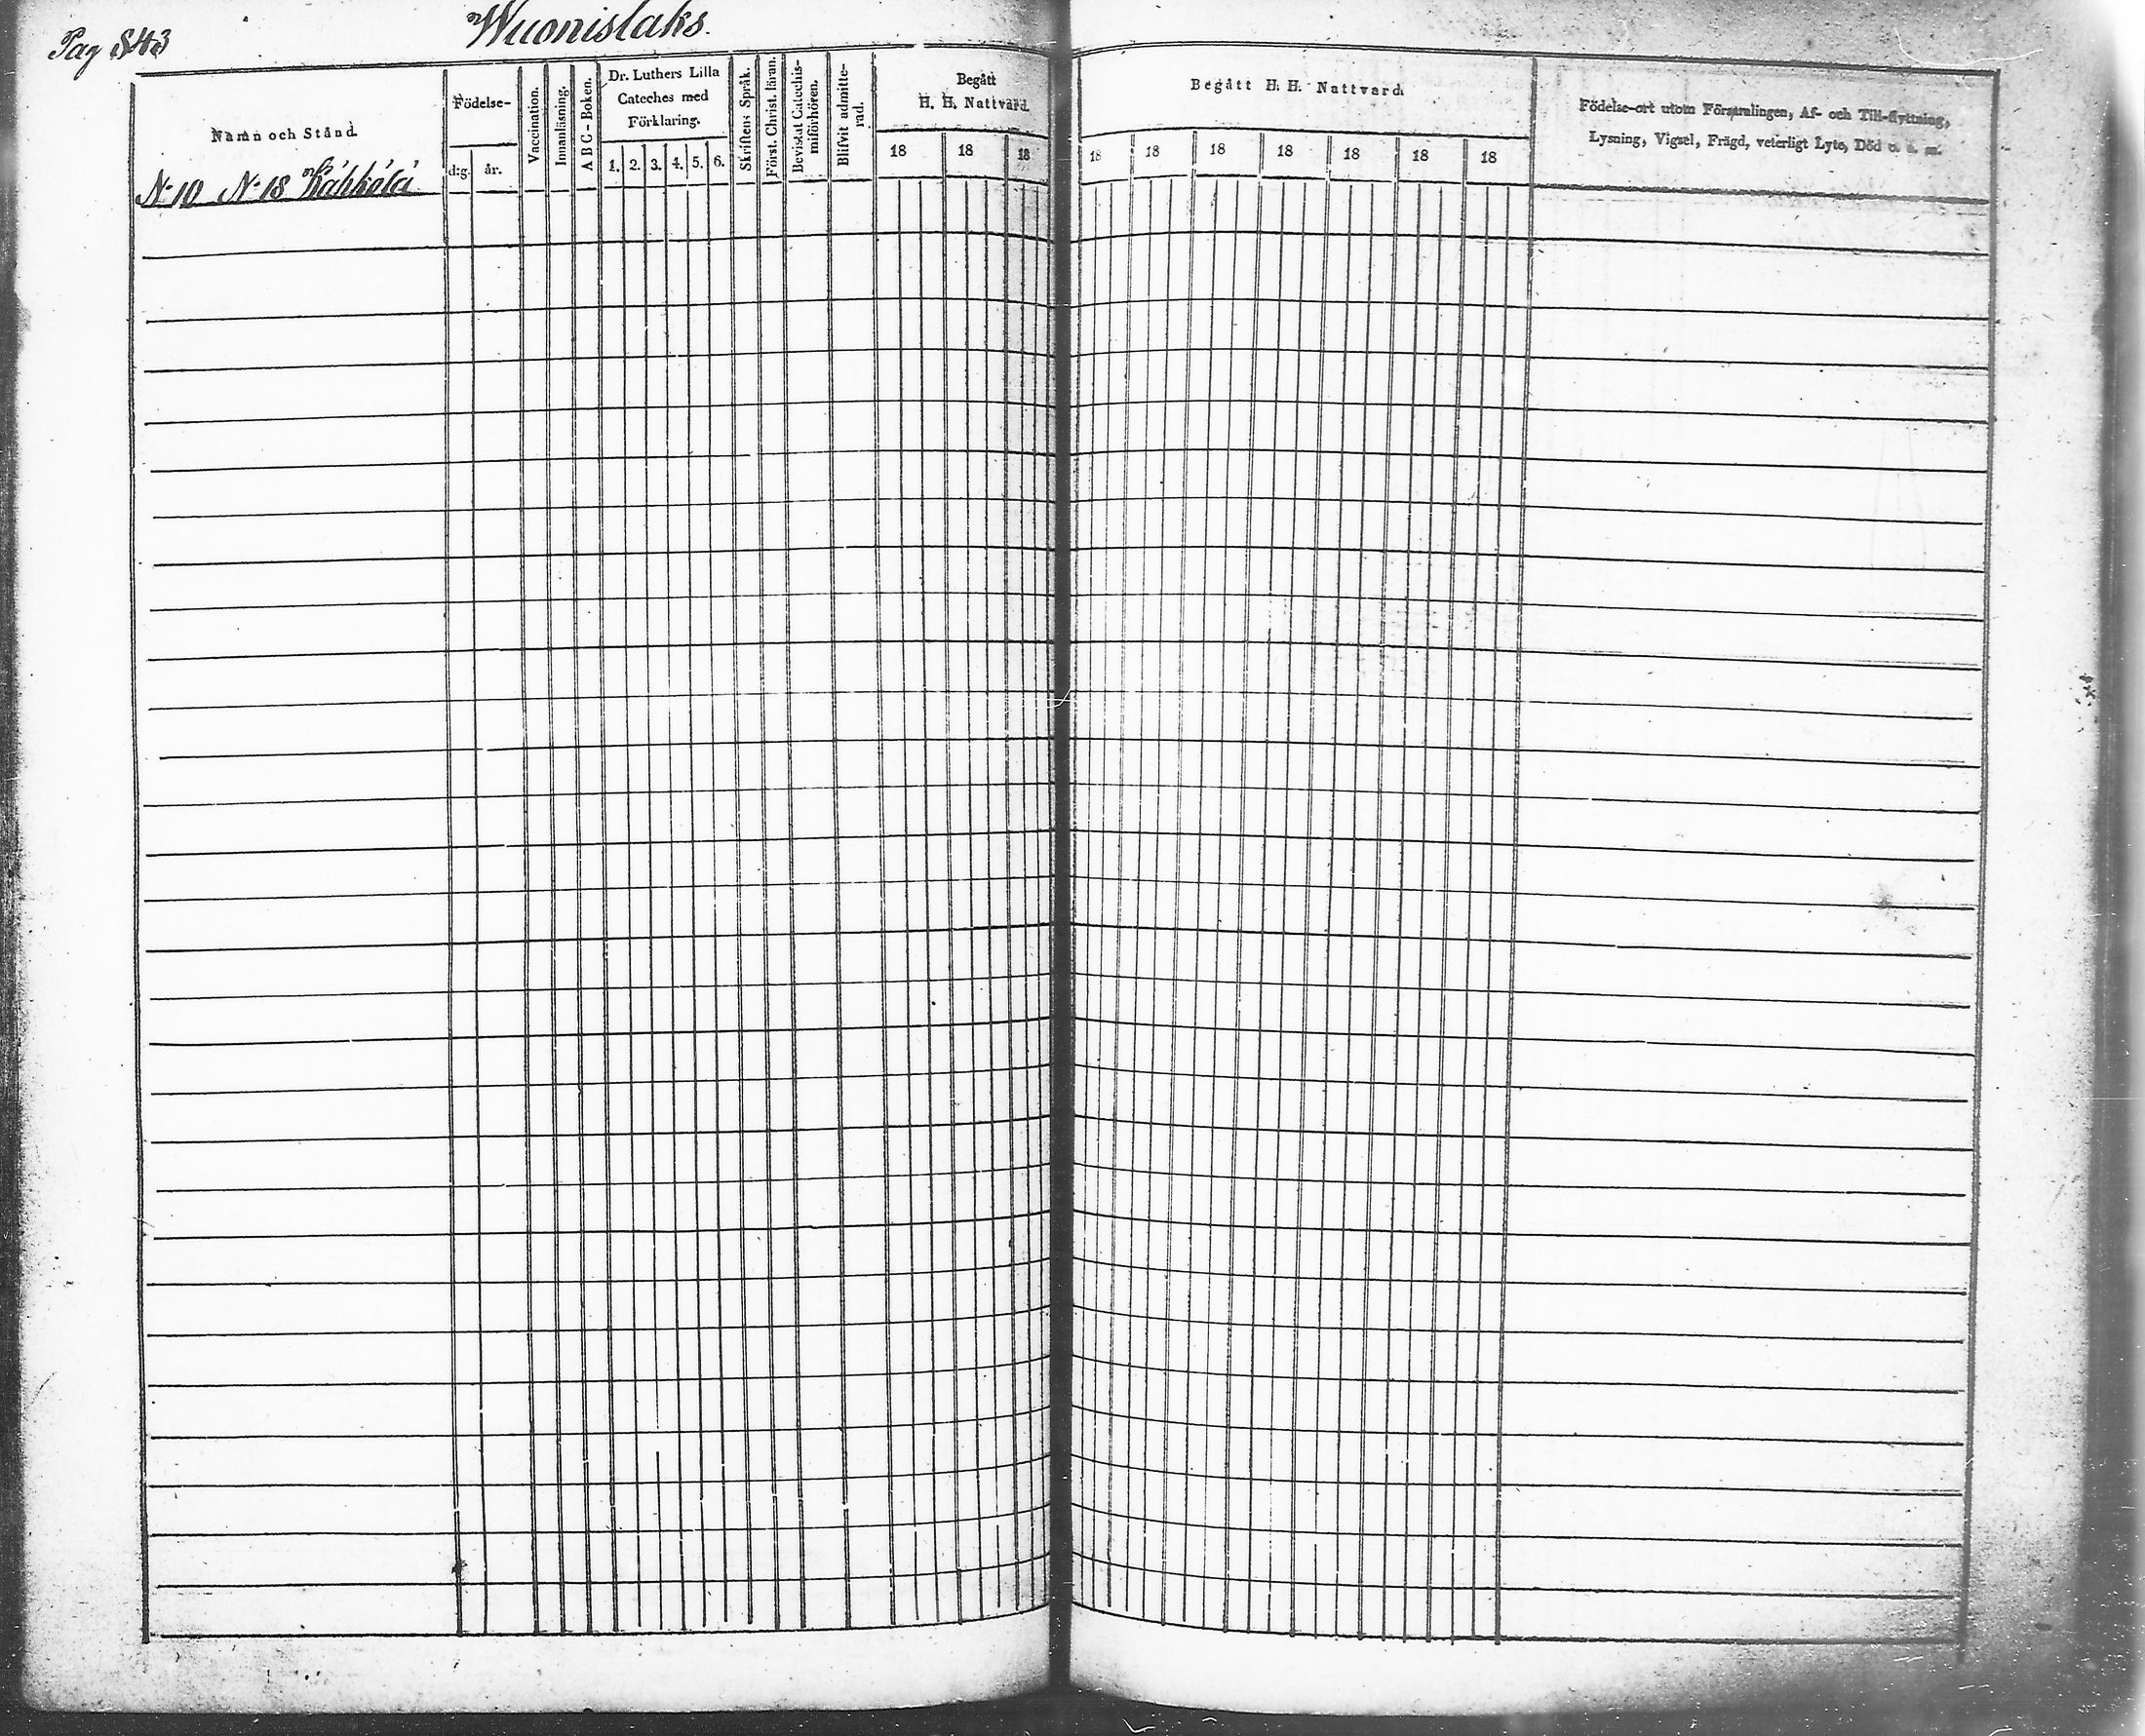 Pag 843
Wuonislaks.
Namn och Stånd.
Födelse-
d:g. år.
Vaccination.
Innanläsning.
ABC-Boken.
Dr. Luthers Lilla
Cateches med
Förklaring.
1. 2. 3. 4. 5. 6.
Skriftens Språk.
Först. Christ. läran.
Bevistat Catechis-
miförhören.
Blifvit admitte-
rad.
Begått
H. H. Nattvard.
18 18 18
Begått H. H. Nattvard.
18 18 18 18 18 18 18
Födelse-ort utom Församlingen, Af- och Till-flyttning,
Lysning, Vigsel, Frägd, veterligt Lyte, Död o. s. m.
N:10 N:18